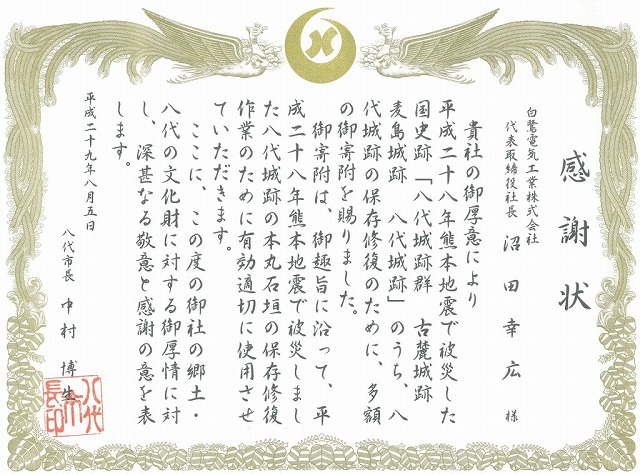 感謝状
白鷺電気工業株式会社
代表取締役社長 沼田幸広 様
貴社の御厚意により
平成二十八年熊本地震で被災した
国史跡「八代城跡群 古麓城跡
麦島城跡 八代城跡」のうち、八
代城跡の保存修復のために、多額
の御寄附を賜りました。
御寄附は、御趣旨に沿って、平
成二十八年熊本地震で被災しまし
た八代城跡の本丸石垣の保存修復
作業のために有効適切に使用させ
ていただきます。
ここに、この度の御社の郷土・
八代の文化財に対する御厚情に対
し、深甚なる敬意と感謝の意を表
します。
平成二十九年八月五日
八代市長 中村博生
八代市長印